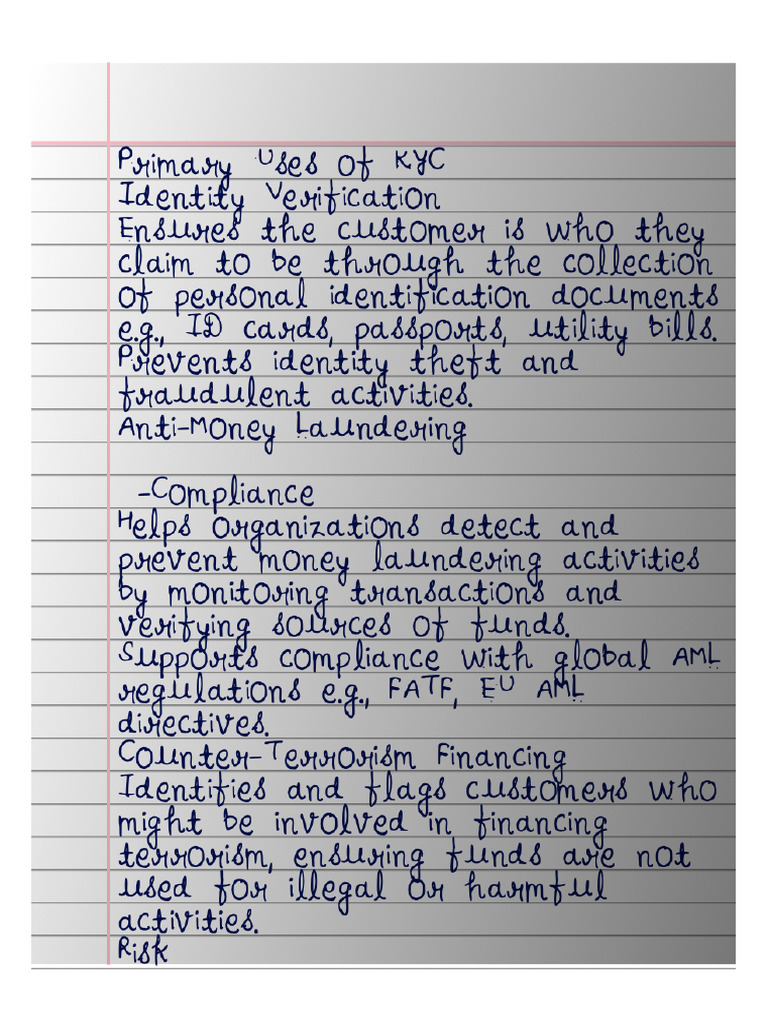 Primary Uses of KYC
Identity Verification
Ensures the customer is who they
claim to be through the collection
of personal identification documents
e.g., ID cards, passports, utility bills.
Prevents identity theft and
fraudulent activities.
Anti-Money Laundering
-Compliance
Helps organizations detect and
prevent money laundering activities
by monitoring transactions and
verifying sources of funds.
Supports compliance with global AML
regulations e.g., FATF, EU AML
directives.
Counter-Terrorism Financing
Identifies and flags customers who
might be involved in financing
terrorism, ensuring funds are not
used for illegal or harmful
activities.
Risk